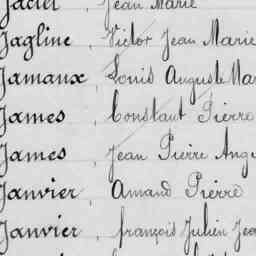 Jean Marie
Jagline, Victor Jean Marie
Jamaux, Louis Auguste Mar
James, Constant Pierre
James, Jean Pierre Ang
Janvier, Amand Pierre
Janvier, françois Julien Jea